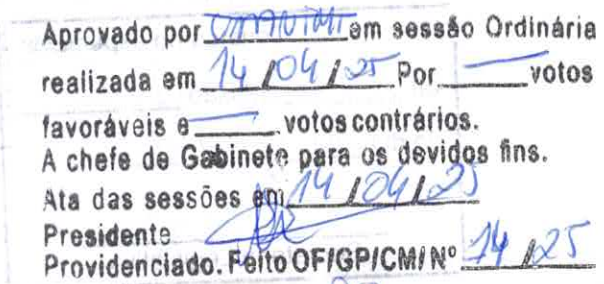 Aprovado por UNANIME em sessão Ordinária
realizada em 14 / 04 / 25 Por — votos
favoráveis e — votos contrários.
A chefe de Gabinete para os devidos fins.
Ata das sessões em 14 / 04 / 25
Presidente
Providenciado. Feito OF/GP/CM/Nº 14 / 25